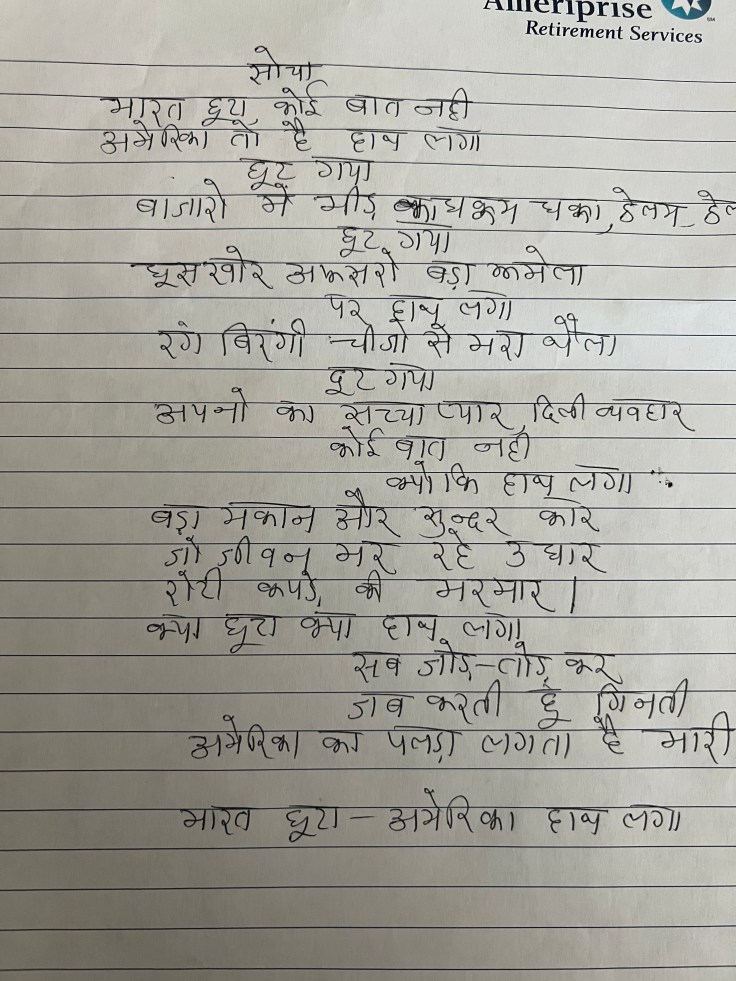 Ameriprise
Retirement Services
सोचा
भारत छूटा, कोई बात नही
अमेरिका तो है हाथ लगा
छूट गया
बाजारो में भीड़ का धकम धका, ठेलम ठेल
छूट गया
घूसखोर अफसरो बड़ा झमेला
पर हाथ लगा
रंग बिरंगी चीजो से भरा थैला
छूट गया
अपनो का सच्चा प्यार, दिली व्यवहार
कोई बात नही
क्योकि हाथ लगा
बड़ा मकान और सुन्दर कार
जो जीवन भर रहे उधार
रोटी कपड़े की भरमार ।
क्या छूटा क्या हाथ लगा
सब जोड़-तोड़ कर
जब करती हूँ गिनती
अमेरिका का पलड़ा लगता है भारी
भारत छूटा - अमेरिका हाथ लगा